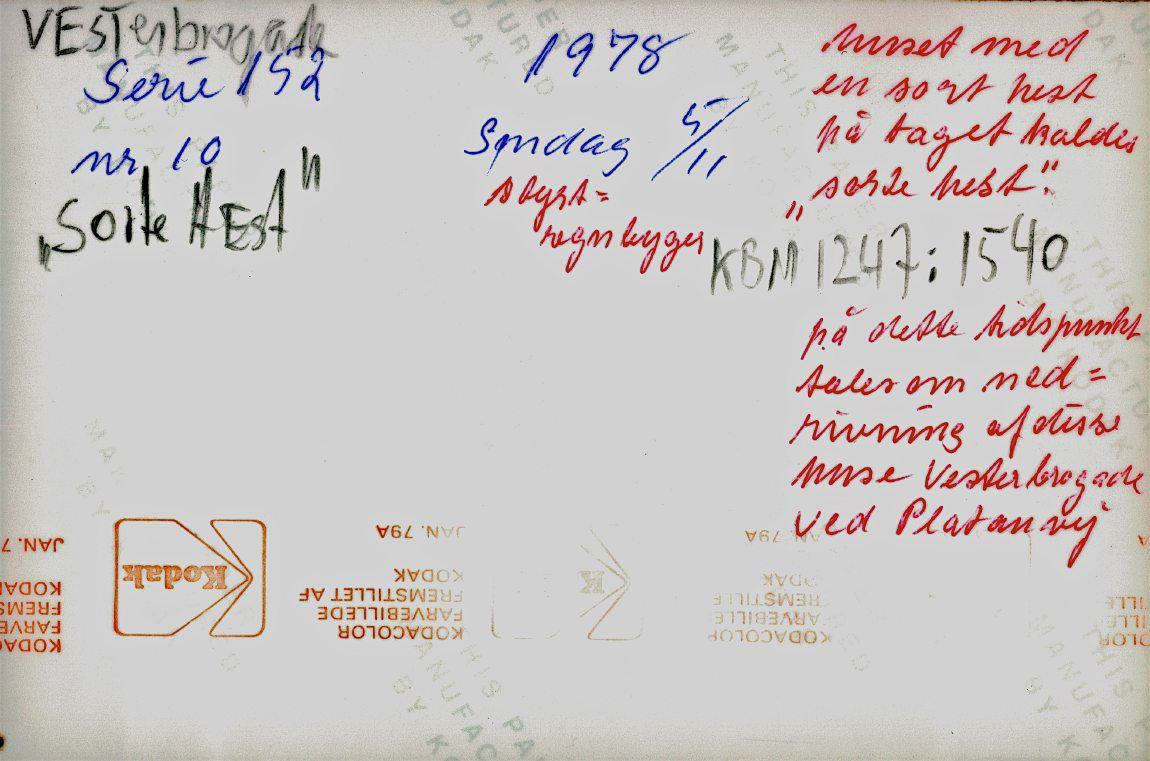 Vesterbrogade
Serie 152
nr 10
„Sorte Hest"
1978
Søndag 5/11
styrt=
regnbyger
huset med
en sort hest
på taget kaldes
„sorte hest".
KBM 1247:1540
på dette tidspunkt
tales om ned=
rivning af disse
huse Vesterbrogade
ved Platanvej
JAN. 79A
KODAK
FREMSTILLET AF
FARVEBILLEDE
KODACOLOR
Kodak
JAN. 79A
KODAK
FREMSTILLET AF
FARVEBILLEDE
KODACOLOR
THIS PAPER
MANUFACTURED
BY KODAK